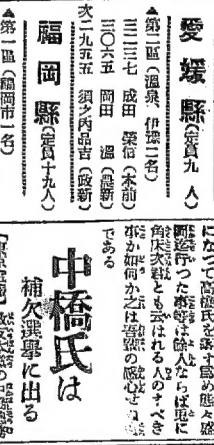 愛媛縣(定員九人)
▲第二區(溫泉、伊豫二名)
三二三七 成田 榮信(本前)
三〇六五 岡田 溫(農新)
次二九五五 須之內品吉(政新)
福岡縣(定員十九人)
▲第一區(福岡市一名)
になつて高橋氏を落す爲め態々盛
岡迄行つた事等は餘人ならば兎に
角床次君とも云はれる人のすべき
事か如何か之は吾輩の感心せぬ
である
中橋氏は
補欠選擧に出る